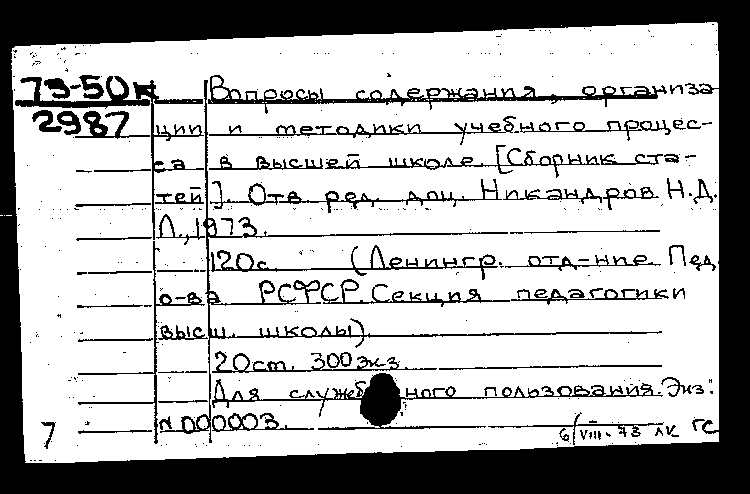 73-50к Вопросы содержания, организа
2987 ции и методики учебного процес-
са в высшей школе. [Сборник ста-
тей]. Отв. ред. доц. Никандров Н.Д.
Л., 1973.
120с. (Ленингр. отд-ние Пед.
о-ва РСФСР. Секция педагогики
высш. школы).
20ст. 300экз.
Для служебного пользования. Экз:
N 000003.
7 6/VIII-73 лк ГС